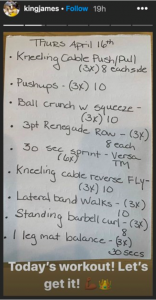 kingjames Follow 19h
Thurs April 16th
• Kneeling Cable Push/Pull
(3x) 8 each side
• Pushups - (3x) 10
• Ball crunch w squeeze -
(3x) 10
• 3pt Renegade Row - (3x)
8 each
• 30 sec sprint - Versa
(6x) TM
• Kneeling cable reverse FLY -
(3x) 10
• Lateral band Walks - (3x)
10
• Standing barbell curl - (3x)
8
• 1 leg mat balance - (3x)
30 secs
Today's workout! Let's
get it!